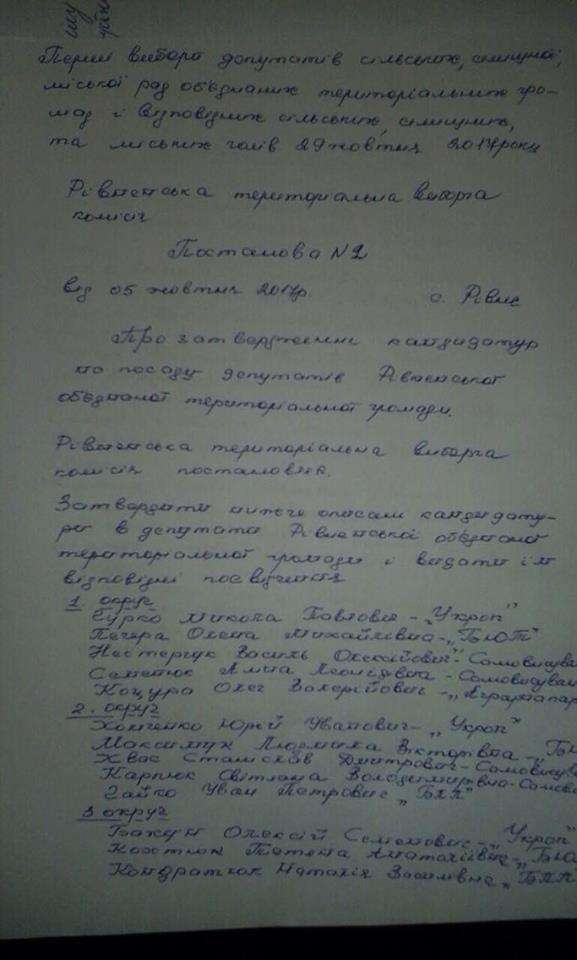 Перші вибори депутатів сільських, селищної,
міської рад об'єднаних територіальних гро-
мад і відповідних сільських, селищних,
та міських голів 29 жовтня 2017 року
Рівненська територіальна виборча
комісія
Постанова №2
від 05 жовтня 2017р. с. Рівне
Про затвердження кандидатур
на посаду депутатів Рівненської
об'єднаної територіальної громади.
Рівненська територіальна виборча
комісія постановила.
Затвердити нижче описані кандидату-
ри в депутати Рівненської об'єднаної
територіальної громади і видати їм
відповідні посвідчення
1. округ
Гурко Микола Павлович - "Укроп"
Печера Олена Михайлівна - "БЮТ"
Нестерчук Василь Олексійович - Самовисуван
Семенюк Анна Леонідівна - Самовисуван
Коцура Олег Валерійович - "Аграрна пар
2. округ
Юрій Іванович - "Укроп"
Максимчук Людмила Вікторівна - "БЮ
Хвас Станіслав Дмитрович - Самовисува
Карпюк Світлана Володимирівна - Самови
Гайко Іван Петрович "БПП"
3 округ
Бахун Олексій Семенович - "Укроп"
Костюк Тетяна Анатоліївна - "БЮ
Кондратюк Наталія Василівна "БПП"